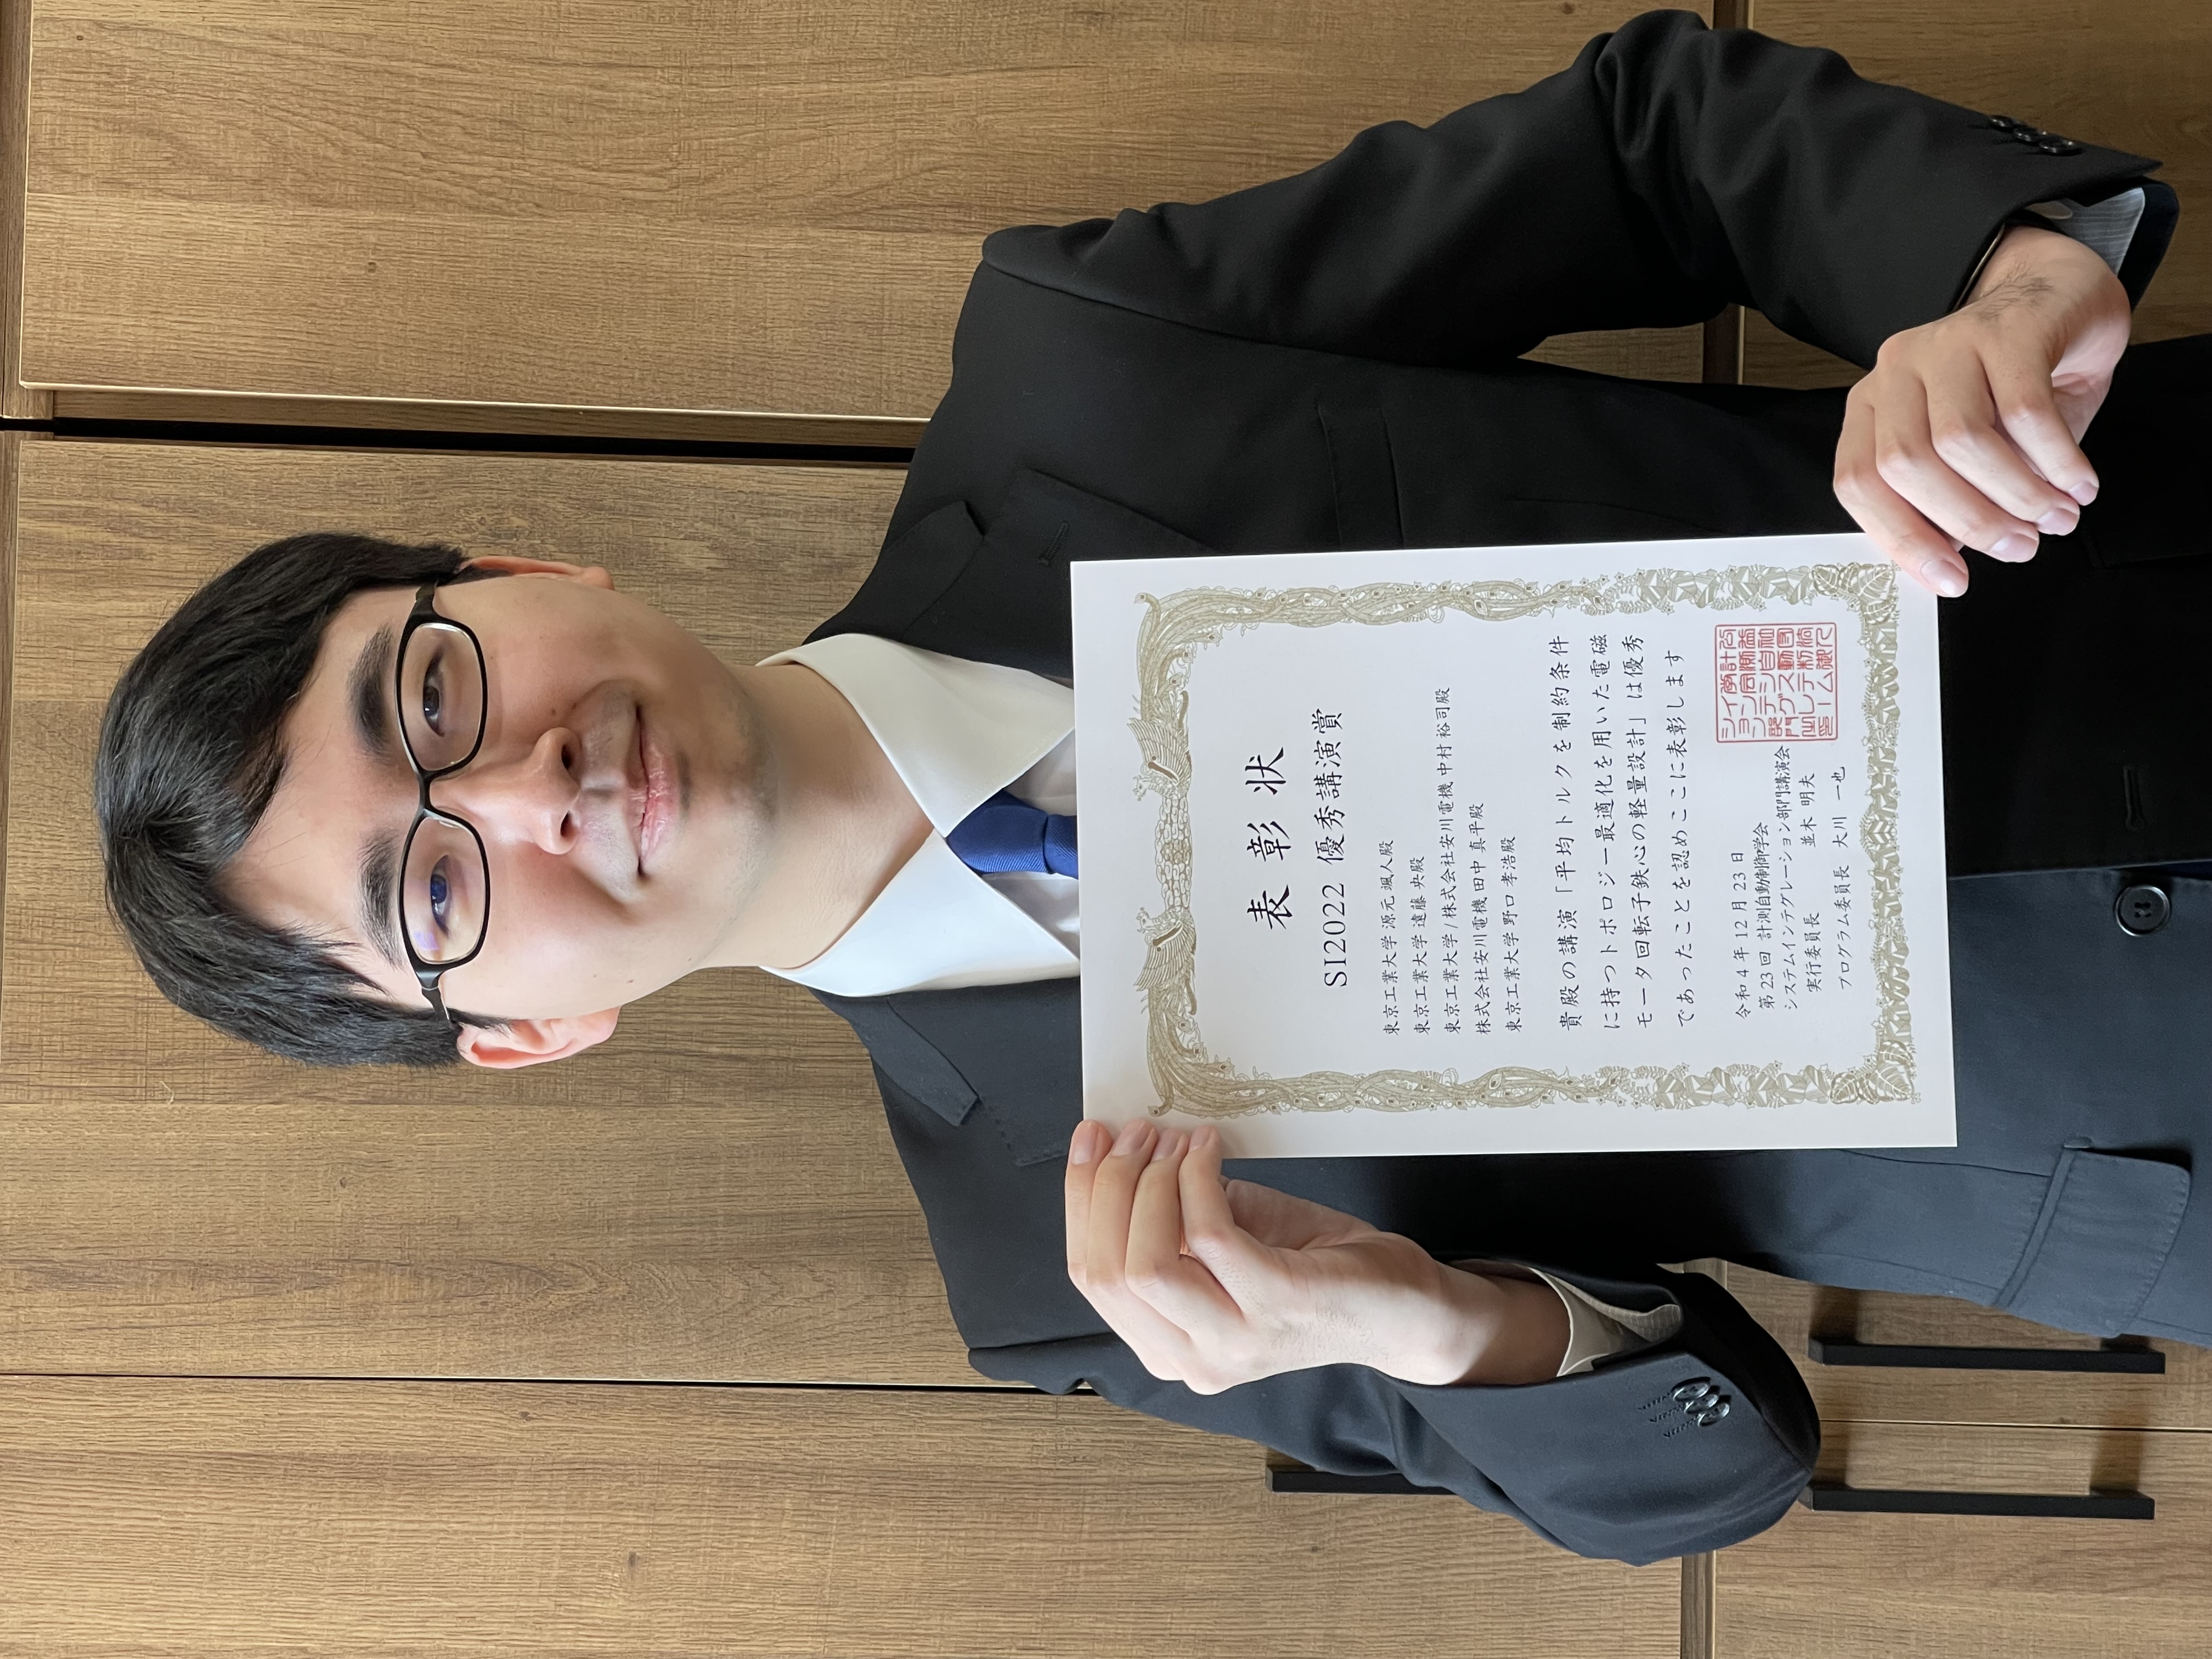 表彰状
SI2022 優秀講演賞
東京工業大学 源元 颯人殿
東京工業大学 遠藤 央殿
東京工業大学/株式会社安川電機 中村 裕司殿
株式会社安川電機 田中 真平殿
東京工業大学 野口 孝浩殿
貴殿の講演「平均トルクを制約条件
に持つトポロジー最適化を用いた電磁
モータ回転子鉄心の軽量設計」は優秀
であったことを認めここに表彰します
令和4年12月23日
第23回 計測自動制御学会
システムインテグレーション部門講演会
実行委員長 並木 明夫
プログラム委員長 大川 一也